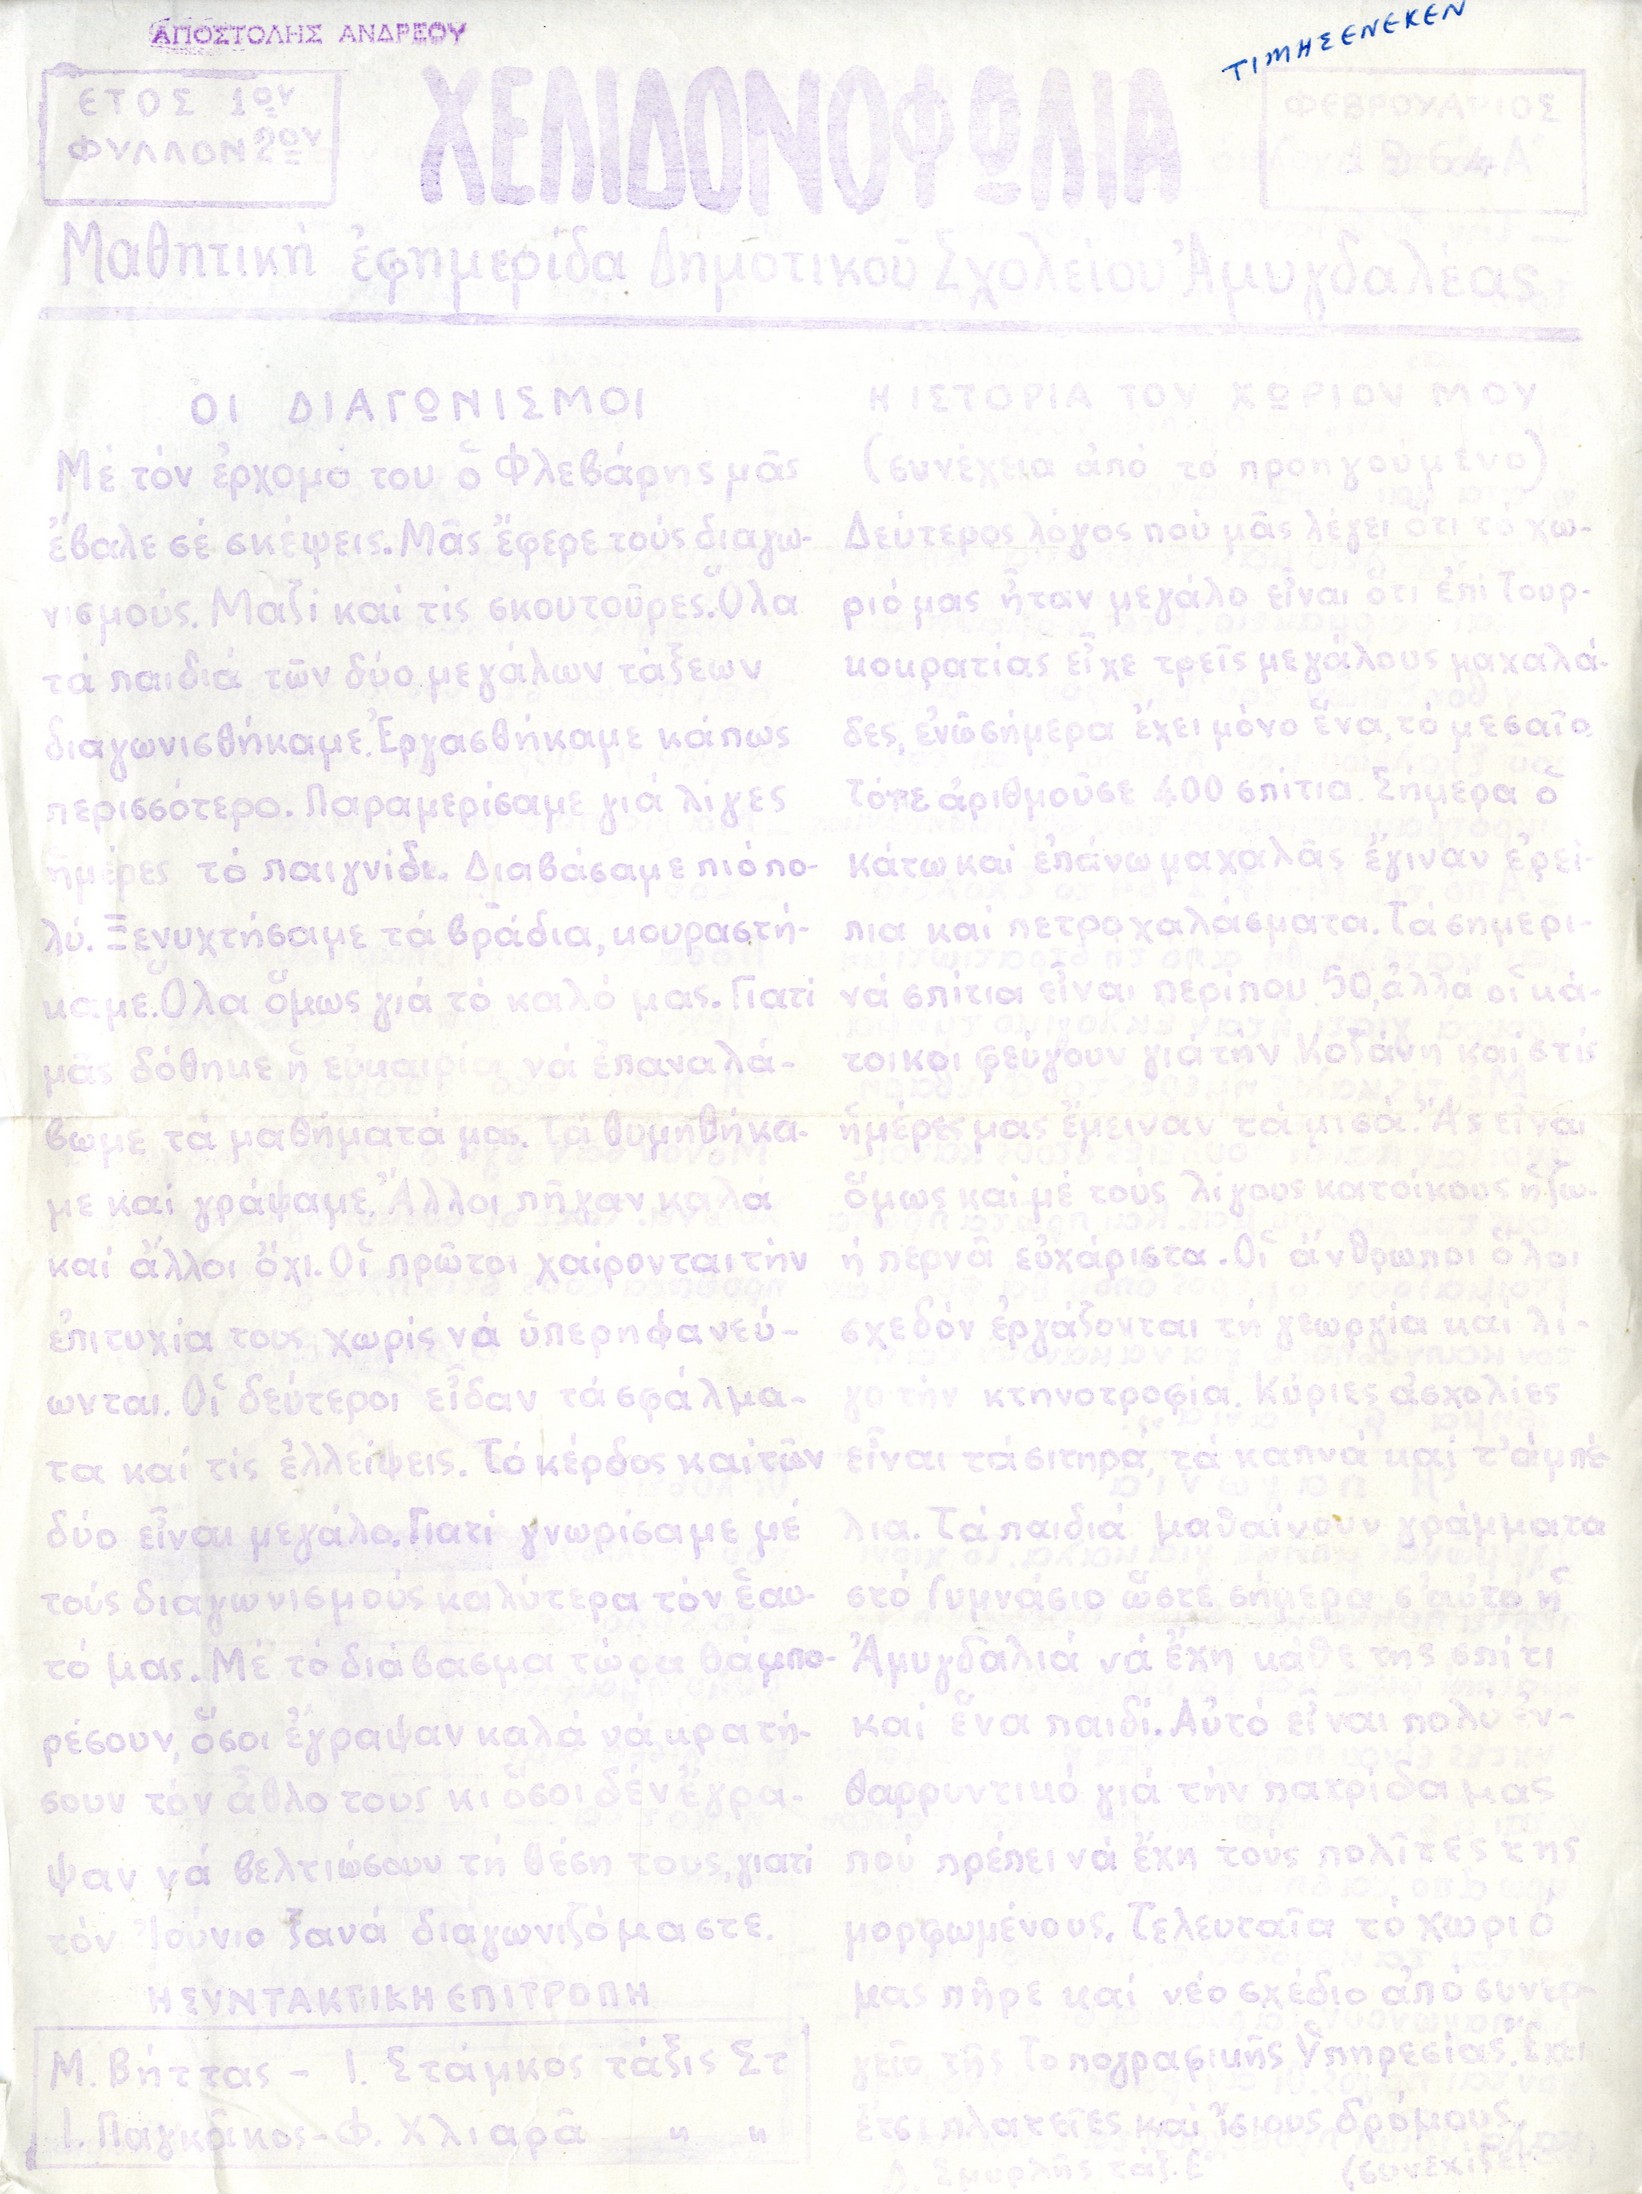 ΑΠΟΣΤΟΛΗΣ ΑΝΔΡΕΟΥ
ΤΙΜΗΣ ΕΝΕΚΕΝ
ΕΤΟΣ 1ον
ΦΥΛΛΟΝ 2ον
ΧΕΛΙΔΟΝΟΦΩΛΙΑ
ΦΕΒΡΟΥΑΡΙΟΣ
1964 Α
Μαθητική ἐφημερίδα Δημοτικοῦ Σχολείου Ἀμυγδαλέας
ΟΙ ΔΙΑΓΩΝΙΣΜΟΙ
Μέ τόν ἐρχομό του ὁ Φλεβάρης μᾶς
ἔβαλε σέ σκέψεις. Μᾶς ἔφερε τούς διαγω-
νισμούς. Μαζί καί τίς σκουτοῦρες. Ὅλα
τά παιδιά τῶν δύο μεγάλων τάξεων
διαγωνισθήκαμε. Ἐργασθήκαμε κάπως
περισσότερο. Παραμερίσαμε γιά λίγες
ἡμέρες τό παιγνίδι. Διαβάσαμε πιό πο-
λύ. Ξενυχτήσαμε τά βράδια, κουραστή-
καμε. Ὅλα ὅμως γιά τό καλό μας. Γιατί
μᾶς δόθηκε ἡ εὐκαιρία νά ἐπαναλά-
βωμε τά μαθήματά μας. Τά θυμηθήκα-
με καί γράψαμε. Ἄλλοι πῆγαν καλά
καί ἄλλοι ὄχι. Οἱ πρῶτοι χαίρονται τήν
ἐπιτυχία τους χωρίς νά ὑπερηφανεύ-
ωνται. Οἱ δεύτεροι εἶδαν τά σφάλμα-
τα καί τίς ἐλλείψεις. Τό κέρδος καί τῶν
δύο εἶναι μεγάλο. Γιατί γνωρίσαμε μέ
τούς διαγωνισμούς καλύτερα τόν ἑαυ-
τό μας. Μέ τό διάβασμα τώρα θά μπο-
ρέσουν, ὅσοι ἔγραψαν καλά νά κρατή-
σουν τόν ἆθλο τους κι ὅσοι δέν ἔγρα-
ψαν νά βελτιώσουν τή θέση τους, γιατί
τόν Ἰούνιο ξανά διαγωνιζόμαστε.
Η ΣΥΝΤΑΚΤΙΚΗ ΕΠΙΤΡΟΠΗ
Μ. Βήττας - Ι. Στάμκος τάξις Στ
Ι. Παγκᾶκος - Φ. Χλιαρᾶ " "
Η ΙΣΤΟΡΙΑ ΤΟΥ ΧΩΡΙΟΥ ΜΟΥ
(συνέχεια ἀπό τό προηγούμενο)
Δεύτερος λόγος πού μᾶς λέγει ὅτι τό χω-
ριό μας ἦταν μεγάλο εἶναι ὅτι ἐπί Τουρ-
κοκρατίας εἶχε τρεῖς μεγάλους μαχαλά-
δες, ἐνῶ σήμερα ἔχει μόνο ἕνα, τό μεσαῖο.
Τότε ἀριθμοῦσε 400 σπίτια. Σήμερα ὁ
κάτω καί ἐπάνω μαχαλᾶς ἔγιναν ἐρεί-
πια καί πετροχαλάσματα. Τά σημερι-
νά σπίτια εἶναι περίπου 50, ἀλλά οἱ κά-
τοικοι φεύγουν γιά τήν Κοζάνη καί στίς
ἡμέρες μας ἔμειναν τά μισά. Ἄς εἶναι
ὅμως καί μέ τούς λίγους κατοίκους ἡ ζω-
ή περνᾶ εὐχάριστα. Οἱ ἄνθρωποι ὅλοι
σχεδόν ἐργάζονται τή γεωργία καί λί-
γο τήν κτηνοτροφία. Κύριες ἀσχολίες
εἶναι τά σιτηρά, τά καπνά καί τ' ἀμπέ-
λια. Τά παιδιά μαθαίνουν γράμματα
στό Γυμνάσιο ὥστε σήμερα σ' αὐτό ἡ
Ἀμυγδαλιά νά ἔχη κάθε της σπίτι
καί ἕνα παιδί. Αὐτό εἶναι πολύ ἐν-
θαρρυντικό γιά τήν πατρίδα μας
πού πρέπει νά ἔχη τούς πολῖτές της
μορφωμένους. Τελευταῖα τό χωριό
μας πῆρε καί νέο σχέδιο ἀπό συνερ-
γεῖο τῆς Τοπογραφικῆς Ὑπηρεσίας. Ἔχει
ἔτσι πλατεῖες καί ἴσιους δρόμους.
Σμυρλῆς τάξ. Ε'
(συνεχίζεται)